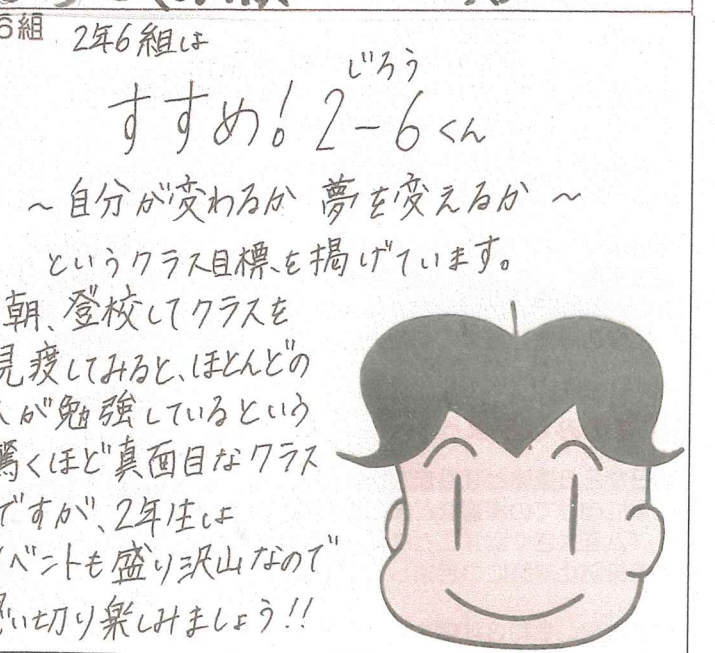 6組
2年6組は
じろう
すすめ！2-6くん
～自分が変わるか 夢を変えるか～
というクラス目標を掲げています。
朝、登校してクラスを
見渡してみると、ほとんどの
人が勉強しているという
驚くほど真面目なクラス
ですが、2年生は
イベントも盛り沢山なので
思い切り楽しみましょう!!